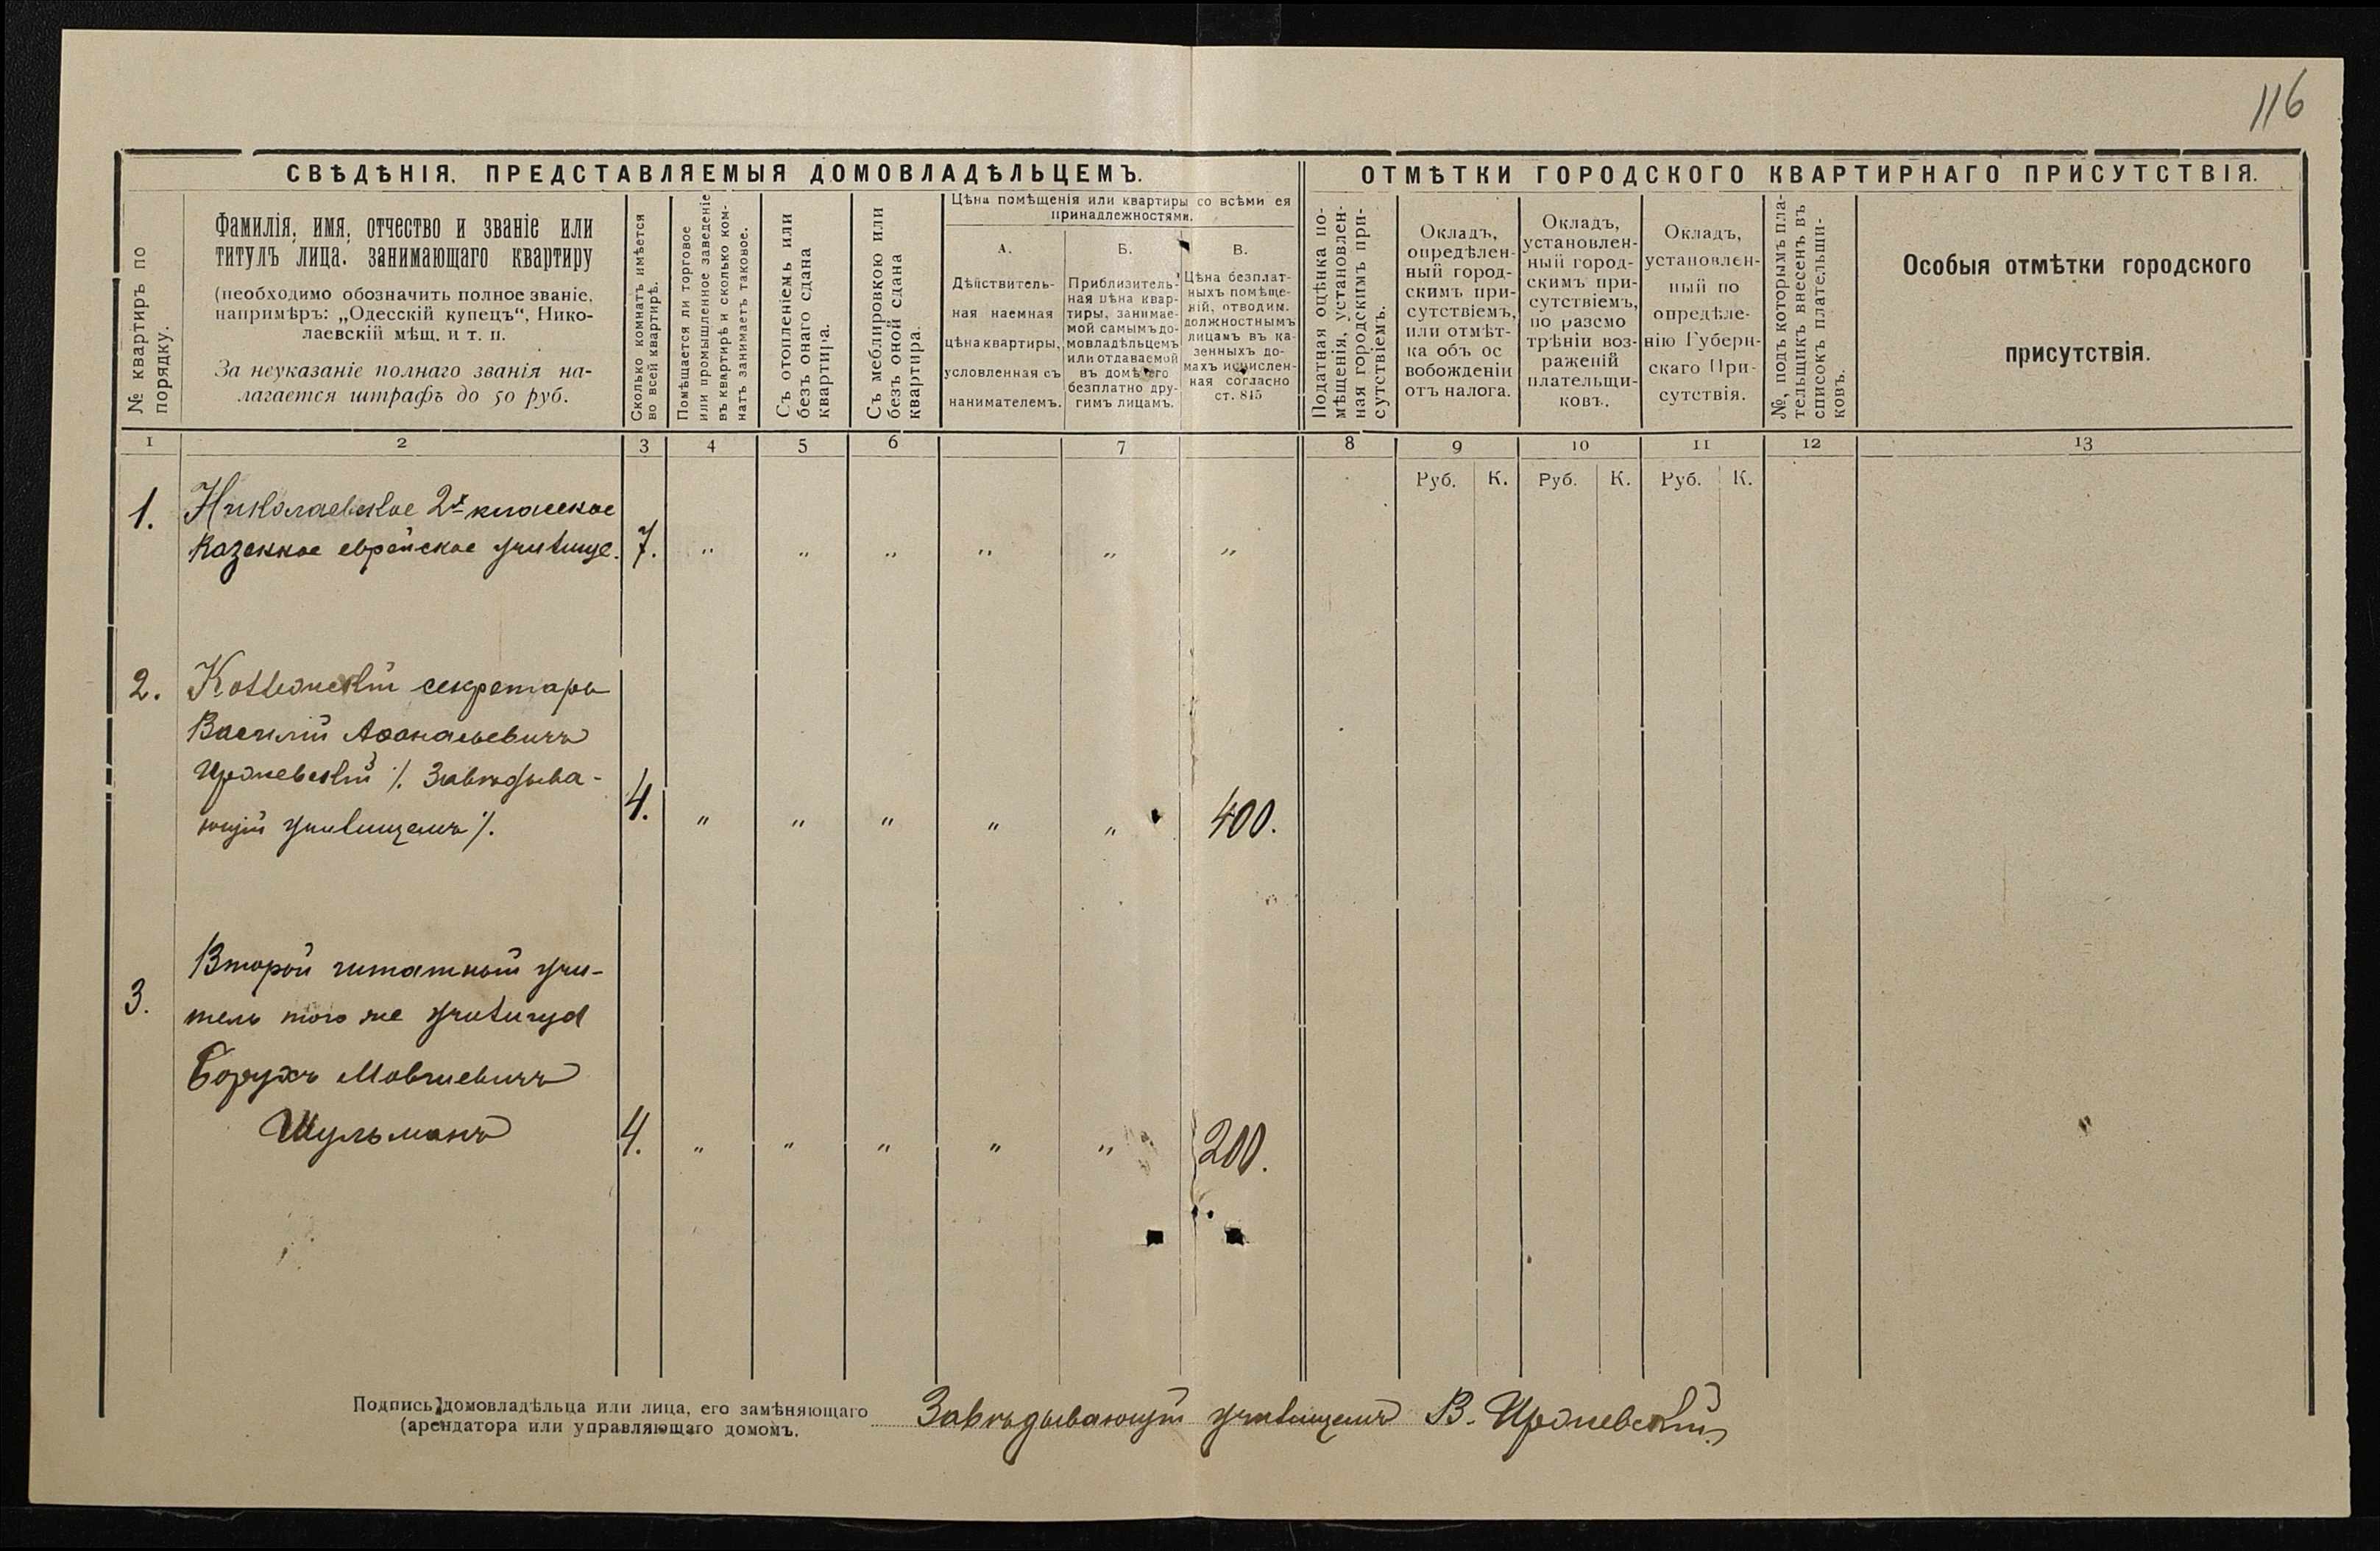 116
СВѢДѢНІЯ, ПРЕДСТАВЛЯЕМЫЯ ДОМОВЛАДѢЛЬЦЕМЪ.
ОТМѢТКИ ГОРОДСКОГО КВАРТИРНАГО ПРИСУТСТВІЯ.
№ квартиръ по
порядку.
Фамилія, имя, отчество и званіе или
титулъ лица, занимающаго квартиру
(необходимо обозначить полное званіе,
напримѣръ: „Одесскій купецъ“, Нико-
лаевскій мѣщ. и т. п.
За неуказаніе полнаго званія на-
лагается штрафъ до 50 руб.
Сколько комнатъ имѣется
во всей квартирѣ.
Помѣщается ли торговое
или промышленное заведеніе
въ квартирѣ и сколько ком-
натъ занимаетъ таковое.
Съ отопленіемъ или
безъ онаго сдана
квартира.
Съ меблировкою или
безъ оной сдана
квартира.
Цѣна помѣщенія или квартиры со всѣми ея
принадлежностями.
А.
Дѣйствитель-
ная наемная
цѣна квартиры,
условленная съ
нанимателемъ.
Б.
Приблизитель-
ная цѣна квар-
тиры, занимае-
мой самымъ до-
мовладѣльцемъ
или отдаваемой
въ домѣ его
безплатно дру-
гимъ лицамъ.
В.
Цѣна безплат-
ныхъ помѣще-
ній, отводим.
должностнымъ
лицамъ въ ка-
зенныхъ до-
махъ исчислен-
ная согласно
ст. 815
Податная оцѣнка по-
мѣщенія, установлен-
ная городскимъ при-
сутствіемъ.
Окладъ,
опредѣлен-
ный город-
скимъ при-
сутствіемъ,
или отмѣт-
ка объ ос
вобожденіи
отъ налога.
Окладъ,
установлен-
ный город-
скимъ при-
сутствіемъ,
по разсмо
трѣніи воз-
раженій
плательщи-
ковъ.
Окладъ,
установлен-
ный по
опредѣле-
нію Губерн-
скаго При-
сутствія.
№, подъ которымъ пла-
тельщикъ внесенъ въ
списокъ плательщи-
ковъ.
Особыя отмѣтки городского
присутствія.
1 2 3 4 5 6 7 8 9 10 11 12 13
Руб. К. Руб. К. Руб. К.
1. Николаевское 2х классное
казенное еврейское училище. 7. " " " " " "
2. Коллежскій секретарь
Василій Аѳанасьевичъ
/. Завѣдыва-
ющій училищемъ /. 4. " " " " " 400.
Второй штатный учи-
3. тель того же училища
Борухъ Мовшевичъ
Шульманъ 4. " " " " " 200.
Подпись домовладѣльца или лица, его замѣняющаго
(арендатора или управляющаго домомъ.
Завѣдывающій училищемъ В.